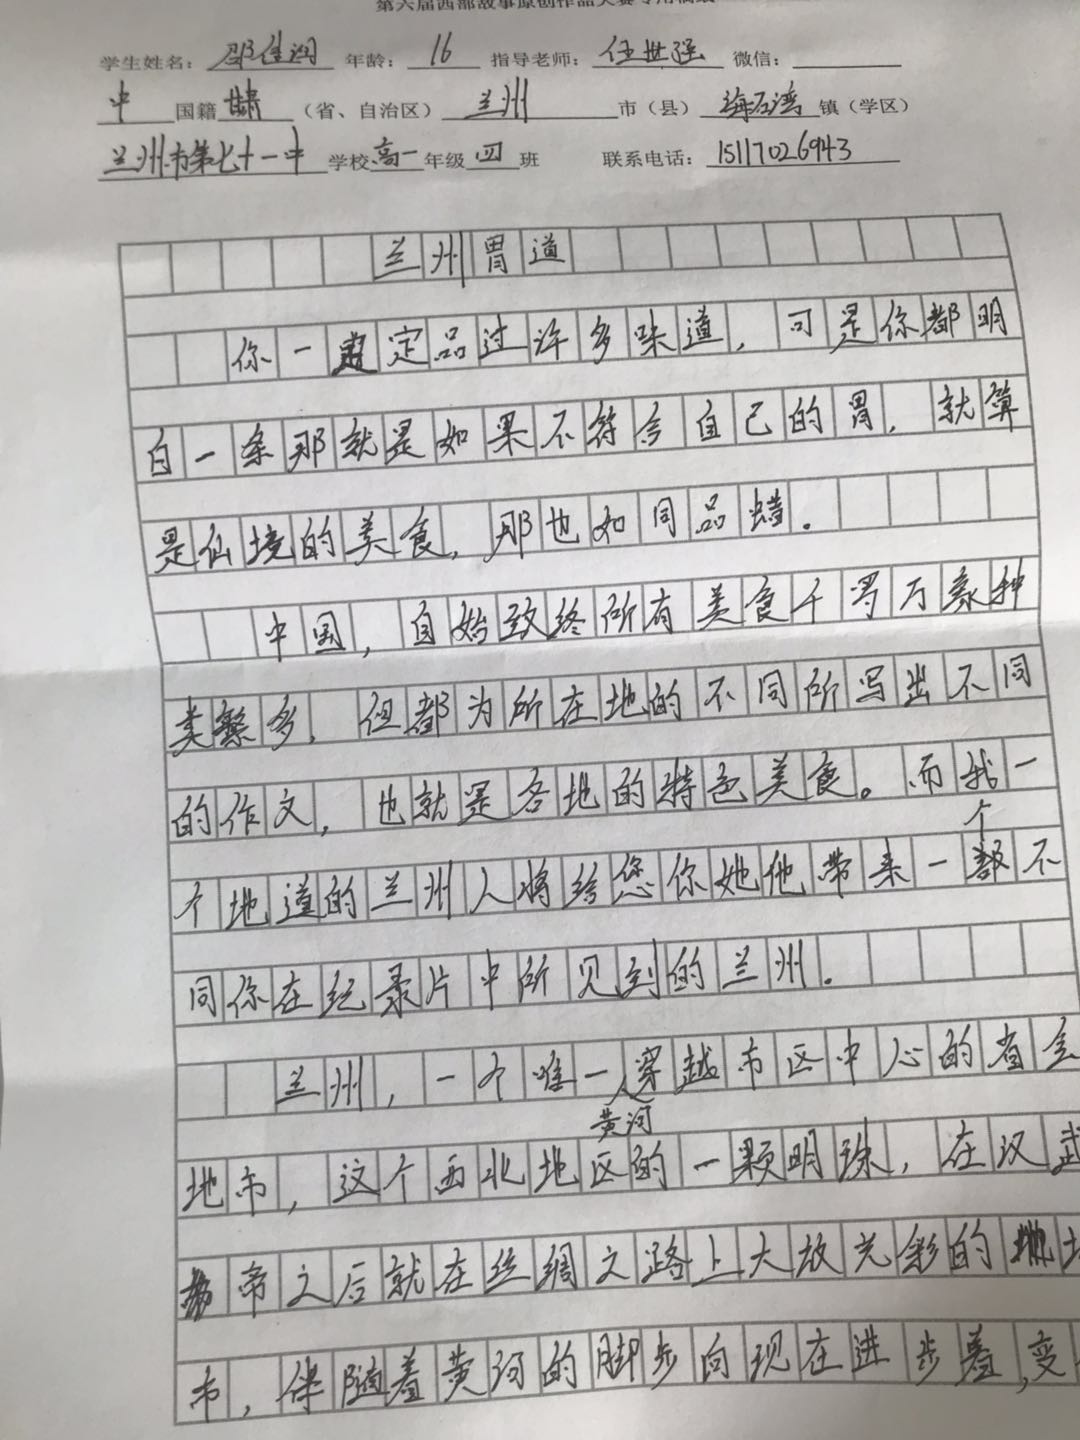 第六届西部故事原创作品大赛专用稿纸
学生姓名：邵佳润 年龄：16 指导老师：任世强 微信：
中国籍 甘肃（省、自治区）兰州市（县）海石湾镇（学区）
兰州市第七十一中学校高一年级四班 联系电话：15117026943
兰州胃道
你一定品过许多味道，可是你都明
白一条那就是如果不符合自己的胃，就算
是仙境的美食，那也如同品蜡。
中国，自始致终所有美食千写万象种
类繁多，但都为所在地的不同所写出不同
的作文，也就是各地的特色美食。而我一
个地道的兰州人将给您你她他带来一个不
同你在纪录片中所见到的兰州。
兰州，一个唯一黄河穿越市区中心的省会
地市，这个西北地区的一颗明珠，在汉武
帝之后就在丝绸之路上大放光彩的城
市，伴随着黄河的脚步向现在进步着，变